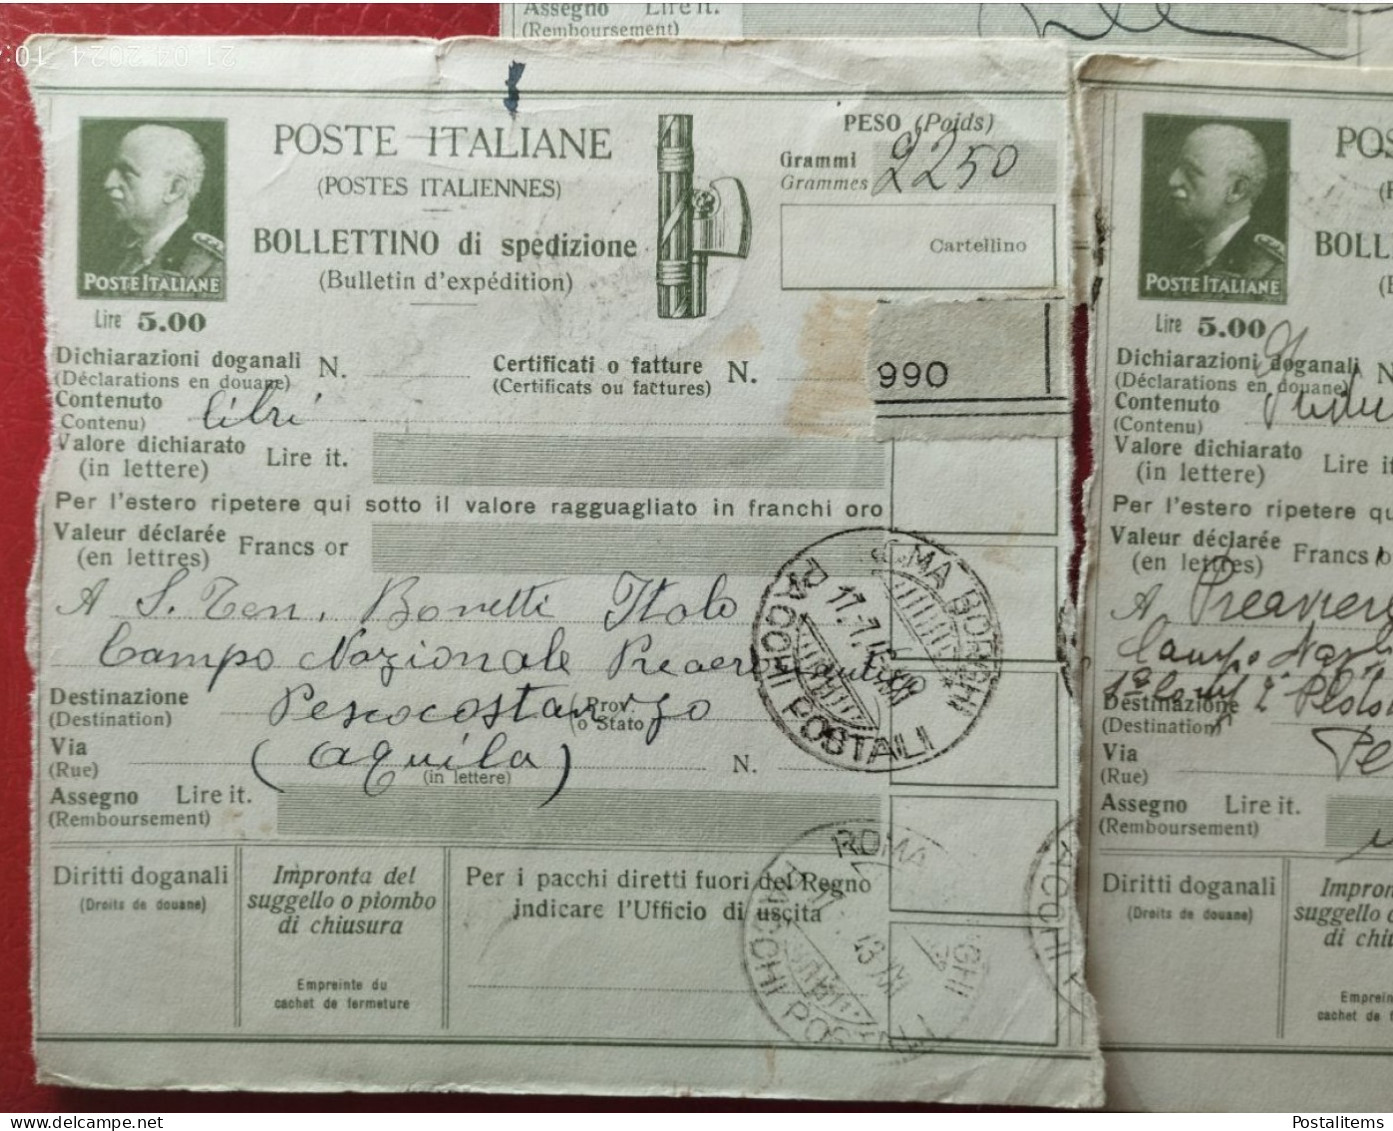 Assegno Lire it.
(Remboursement)
21 04 2024 10:4
POSTE ITALIANE
(POSTES ITALIENNES)
BOLLETTINO di spedizione
(Bulletin d'expédition)
POSTE ITALIANE
Lire 5.00
PESO (Poids)
Grammi
Grammes
2250
Cartellino
Dichiarazioni doganali N.
(Déclarations en douane)
Certificati o fatture N.
(Certificats ou factures)
990
Contenuto libri
(Contenu)
Valore dichiarato Lire it.
(in lettere)
Per l'estero ripetere qui sotto il valore ragguagliato in franchi oro
Valeur déclarée Francs or
(en lettres)
A S. Ten. Bonetti Italo
Campo Nazionale Preaeronautico
Destinazione Pescocostanzo Prov.
(Destination) o Stato
Via (Aquila) N.
(Rue) (in lettere)
Assegno Lire it.
(Remboursement)
ROMA BORGHI
PACCHI POSTALI
17.7.
ROMA
PACCHI POSTALI
43 XXI
Diritti doganali
(Droits de douane)
Impronta del
suggello o piombo
di chiusura
Empreinte du
cachet de fermeture
Per i pacchi diretti fuori del Regno
indicare l'Ufficio di uscita
POS
BOLL
POSTE ITALIANE
Lire 5.00
Dichiarazioni doganali N
(Déclarations en douane)
Contenuto
(Contenu)
Valore dichiarato Lire it
(in lettere)
Per l'estero ripetere qu
Valeur déclarée Francs o
(en lettres)
A Preaer
Campo
Destinazione
(Destination)
Via Pe
(Rue)
Assegno Lire it.
(Remboursement)
Diritti doganali
(Droits de douane)
Impron
suggello o
di chiu
Emprein
cachet de f
Postalitems